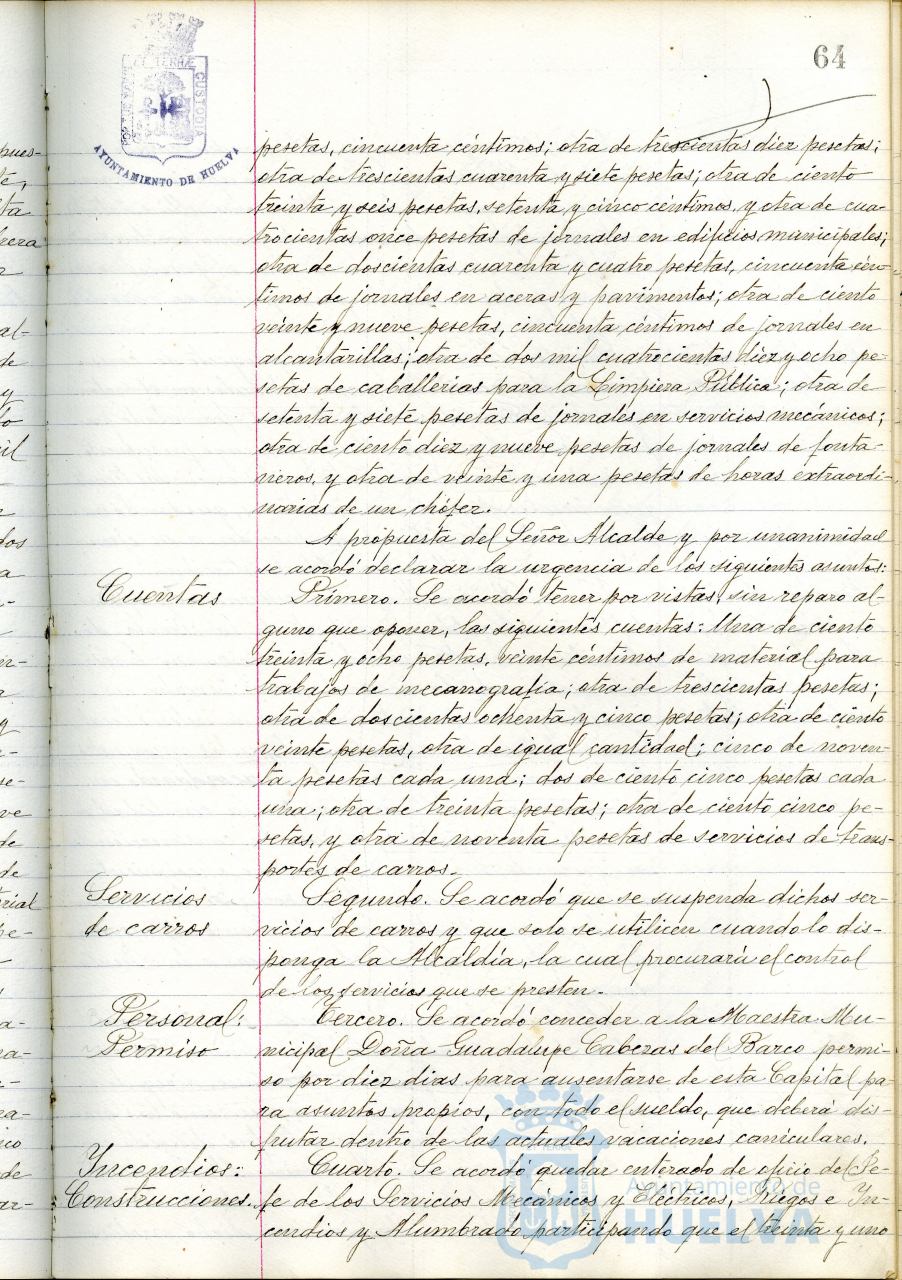 64
PORTUS MARIS ET TERRAE CUSTODIA
AYUNTAMIENTO DE HUELVA
pesetas, cincuenta céntimos; otra de trescientas diez pesetas;
otra de trescientas cuarenta y siete pesetas; otra de ciento
treinta y seis pesetas, setenta y cinco céntimos, y otra de cua-
trocientas once pesetas de jornales en edificios municipales;
otra de doscientas cuarenta y cuatro pesetas, cincuenta cén-
timos de jornales en aceras y pavimentos; otra de ciento
veinte y nueve pesetas, cincuenta céntimos de jornales en
alcantarillas; otra de dos mil cuatrocientas diez y ocho pe-
setas de caballerias para la Limpieza Pública; otra de
setenta y siete pesetas de jornales en servicios mecánicos;
otra de ciento diez y nueve pesetas de jornales de fonta-
neros, y otra de veinte y una pesetas de horas extraordi-
narias de un chófer.
A propuesta del Señor Alcalde y por unanimidad
se acordó declarar la urgencia de los siguientes asuntos:
Cuentas
Primero. Se acordó tener por vistas, sin reparo al-
guno que oponer, las siguientes cuentas: Una de ciento
treinta y ocho pesetas, veinte céntimos de material para
trabajos de mecanografía; otra de trescientas pesetas;
otra de doscientas ochenta y cinco pesetas; otra de ciento
veinte pesetas, otra de igual cantidad; cinco de noven-
ta pesetas cada una; dos de ciento cinco pesetas cada
una; otra de treinta pesetas; otra de ciento cinco pe-
setas, y otra de noventa pesetas de servicios de trans-
portes de carros.
Servicios
de carros
Segundo. Se acordó que se suspenda dichos ser-
vicios de carros y que solo se utilicen cuando lo dis-
ponga la Alcaldía, la cual procurará el control
de los servicios que se presten.
Personal:
Permiso
Tercero. Se acordó conceder a la Maestra Mu-
nicipal Doña Guadalupe Cabezas del Barco permi-
so por diez dias para ausentarse de esta Capital pa-
ra asuntos propios, con todo el sueldo, que deberá dis-
frutar dentro de las actuales vacaciones caniculares.
Incendios:
Construcciones.
Cuarto. Se acordó quedar enterado de oficio del Je-
fe de los Servicios Mecánicos y Eléctricos, Riegos e In-
cendios y Alumbrado participando que el treinta y uno
Ayuntamiento de
HUELVA